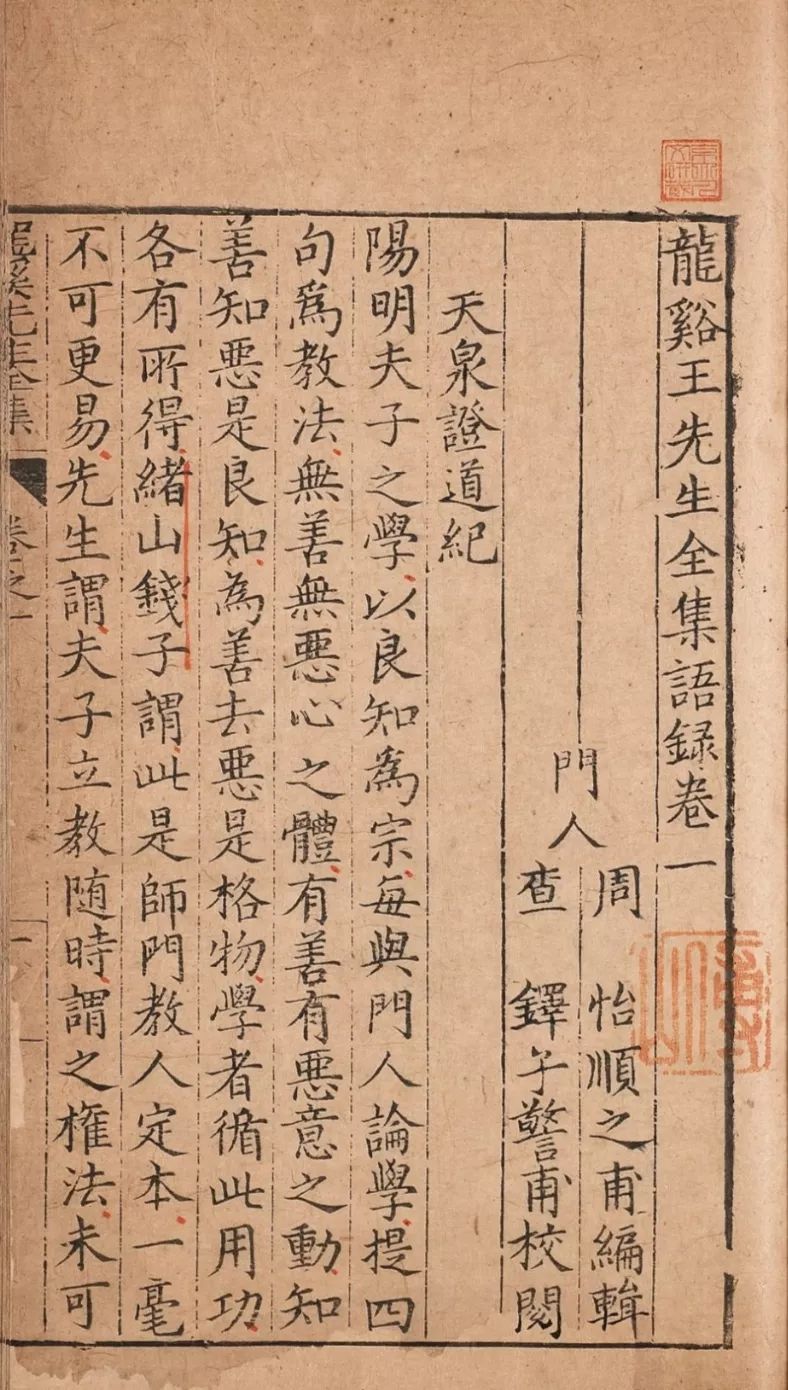 龍谿王先生全集語録卷一
門人
周　怡順之甫編輯
查　鐸子警甫校閱
天泉證道紀
陽明夫子之學以良知為宗每與門人論學提四
句爲教法無善無惡心之體有善有惡意之動知
善知惡是良知為善去惡是格物學者循此用功
各有所得緒山錢子謂此是師門教人定本一毫
不可更易先生謂夫子立教随時謂之權法未可
龍溪先生全集　卷之一　一